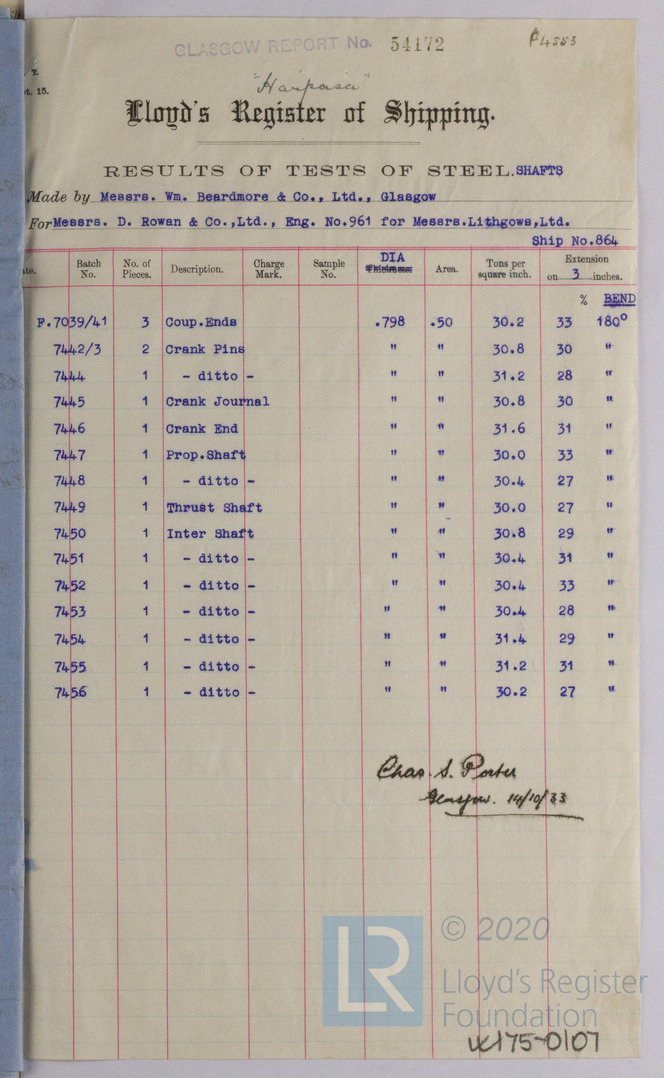 GLASGOW REPORT No. 54172 P4553
7.
t. 15.
"Harpasa"
Lloyd's Register of Shipping.
RESULTS OF TESTS OF STEEL.SHAFTS
Made by Messrs. Wm. Beardmore & Co., Ltd., Glasgow
For Messrs. D. Rowan & Co.,Ltd., Eng. No.961 for Messrs.Lithgows,Ltd.
Ship No.864
te. Batch No. No. of Pieces. Description. Charge Mark. Sample No. DIA Thickness Area. Tons per square inch. Extension on 3 inches.
% BEND
F.7039/41 3 Coup.Ends .798 .50 30.2 33 180°
7442/3 2 Crank Pins " " 30.8 30 "
7444 1 - ditto - " " 31.2 28 "
7445 1 Crank Journal " " 30.8 30 "
7446 1 Crank End " " 31.6 31 "
7447 1 Prop.Shaft " " 30.0 33 "
7448 1 - ditto - " " 30.4 27 "
7449 1 Thrust Shaft " " 30.0 27 "
7450 1 Inter Shaft " " 30.8 29 "
7451 1 - ditto - " " 30.4 31 "
7452 1 - ditto - " " 30.4 33 "
7453 1 - ditto - " " 30.4 28 "
7454 1 - ditto - " " 31.4 29 "
7455 1 - ditto - " " 31.2 31 "
7456 1 - ditto - " " 30.2 27 "
Chas. S. Porter
Glasgow. 14/10/33
LR © 2020
Lloyd's Register
Foundation
W175-0107